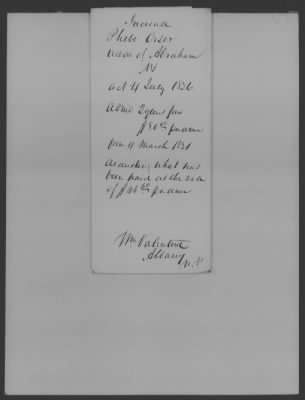 Increase
Phebe Orser
widow of Abraham
NY
act 4 July 1836
Admd 2 yrs for
$80 00 pr ann
from 4 March 1831
deducting what has
been paid at the rate
of $46 66 pr ann
Wm Valentine
Albany
N.Y